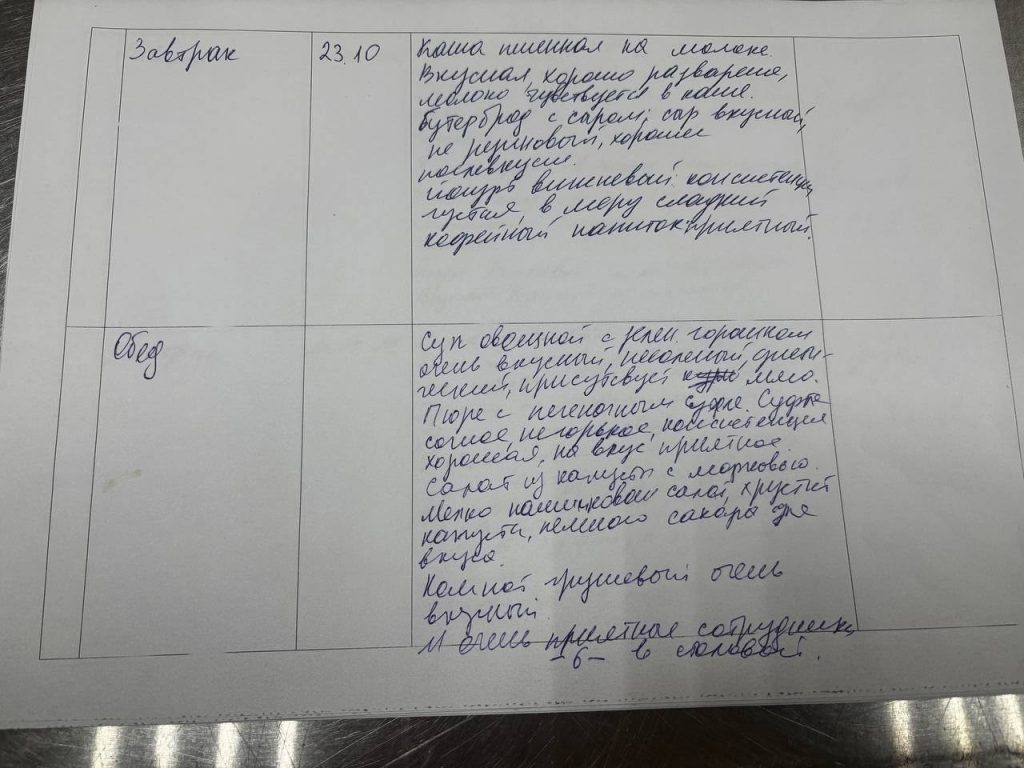 Завтрак
23.10
Каша пшенная на молоке.
Вкусная, хорошо разварена,
молоко чувствуется в каше.
бутерброд с сыром, сыр вкусный,
не резиновый, хорошее
послевкусие.
йогурт вишневый консистенция
густая, в меру сладкий
кофейный напиток приятный.
Обед
Суп овощной с зелен. горошком
очень вкусный, несоленый,
присутствует мясо.
Пюре с печеночным суфле. Суфле
сочное, не горькое, консистенция
хорошая, на вкус приятное.
Салат из капусты с морковью.
Мелко нашинкован салат, хрустит
капуста, немного сахара для
вкуса.
Компот грушевый очень
вкусный.
И очень приятные сотрудники
-6- в столовой.